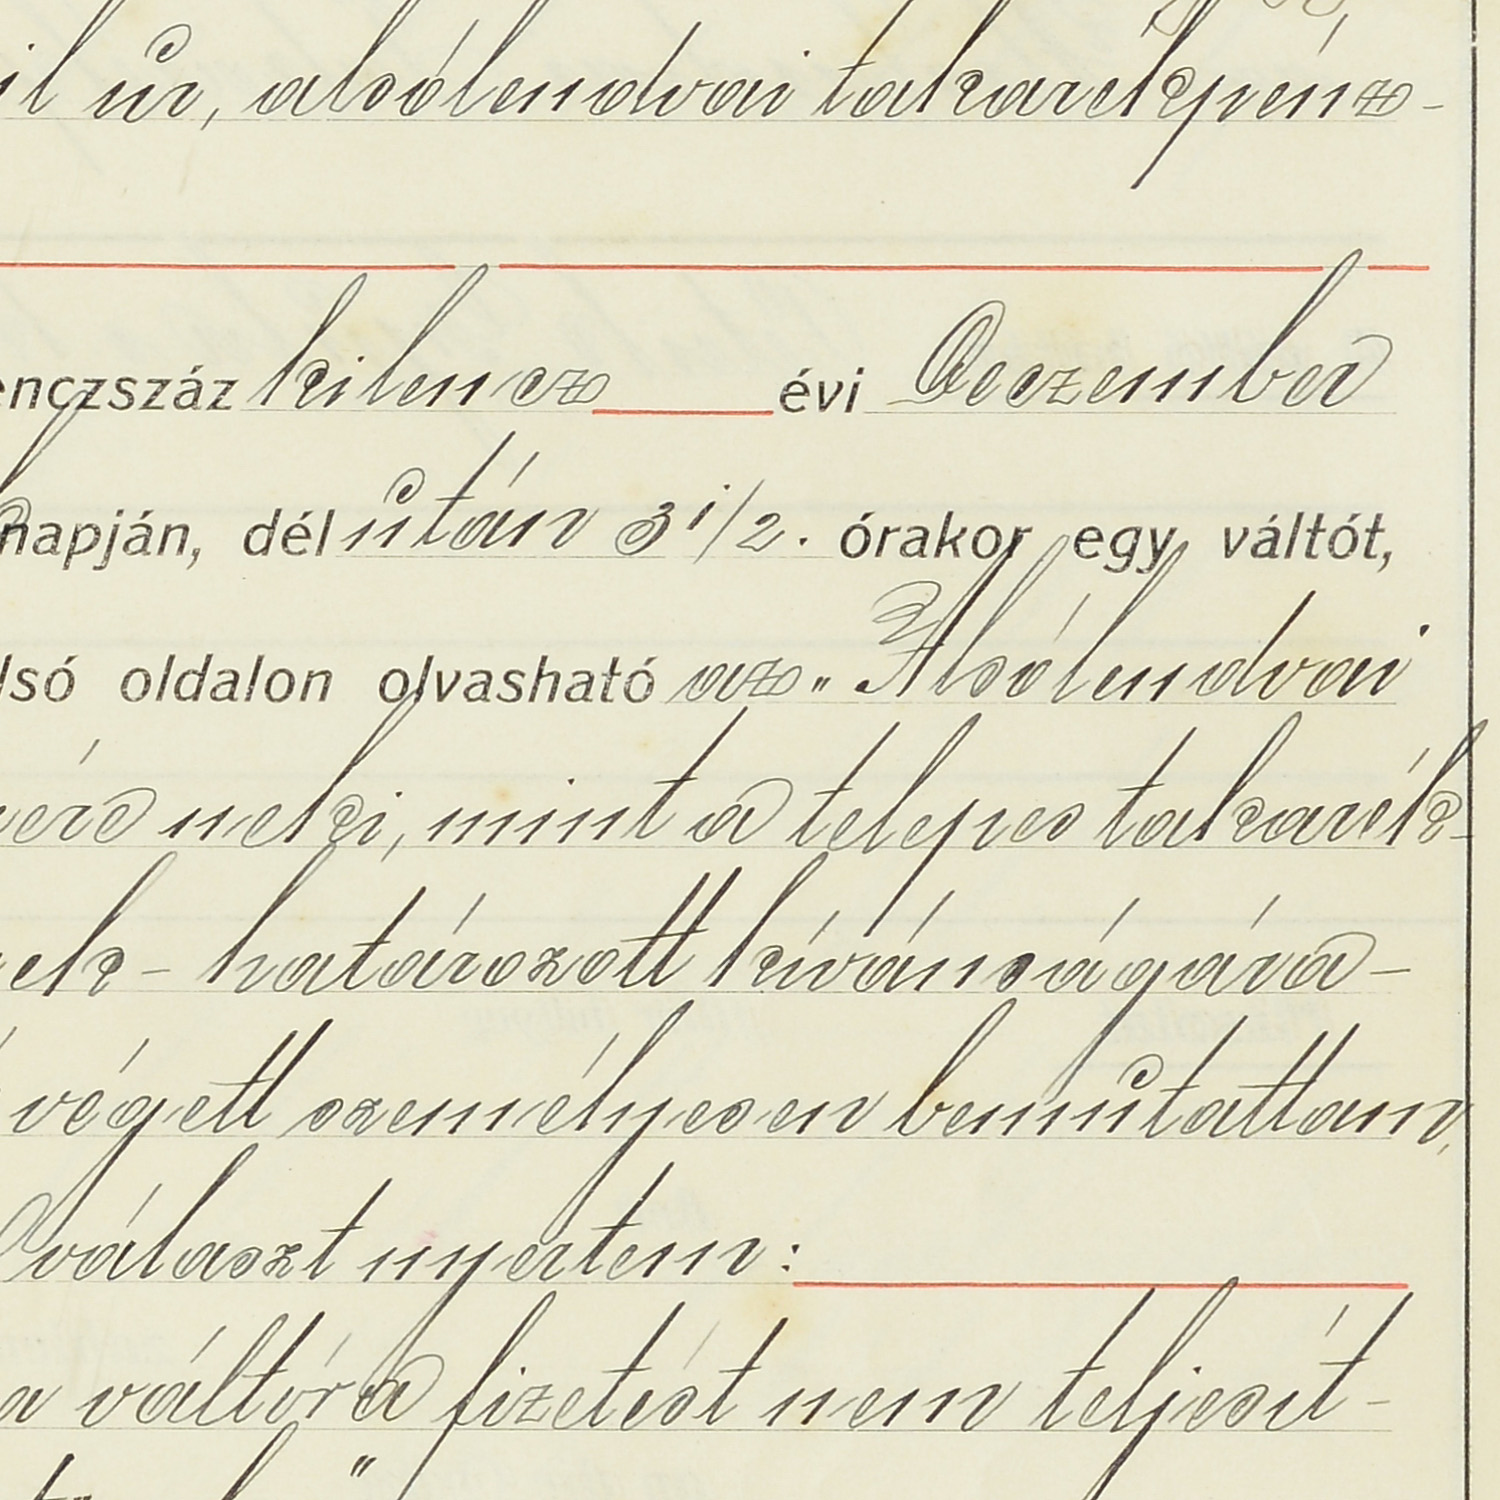 il úr, alsólendvai takarékpénz-
enczszáz kilencz évi Deczember
napján, délután 3 1/2. órakor egy váltót,
lsó oldalon olvasható az „Alsólendvai
neki, mint a telepes takarék-
ek- határozott kívánságára-
végett személyesen bemutattam,
választ nyertem:
a váltóra fizetést nem teljesít-
"